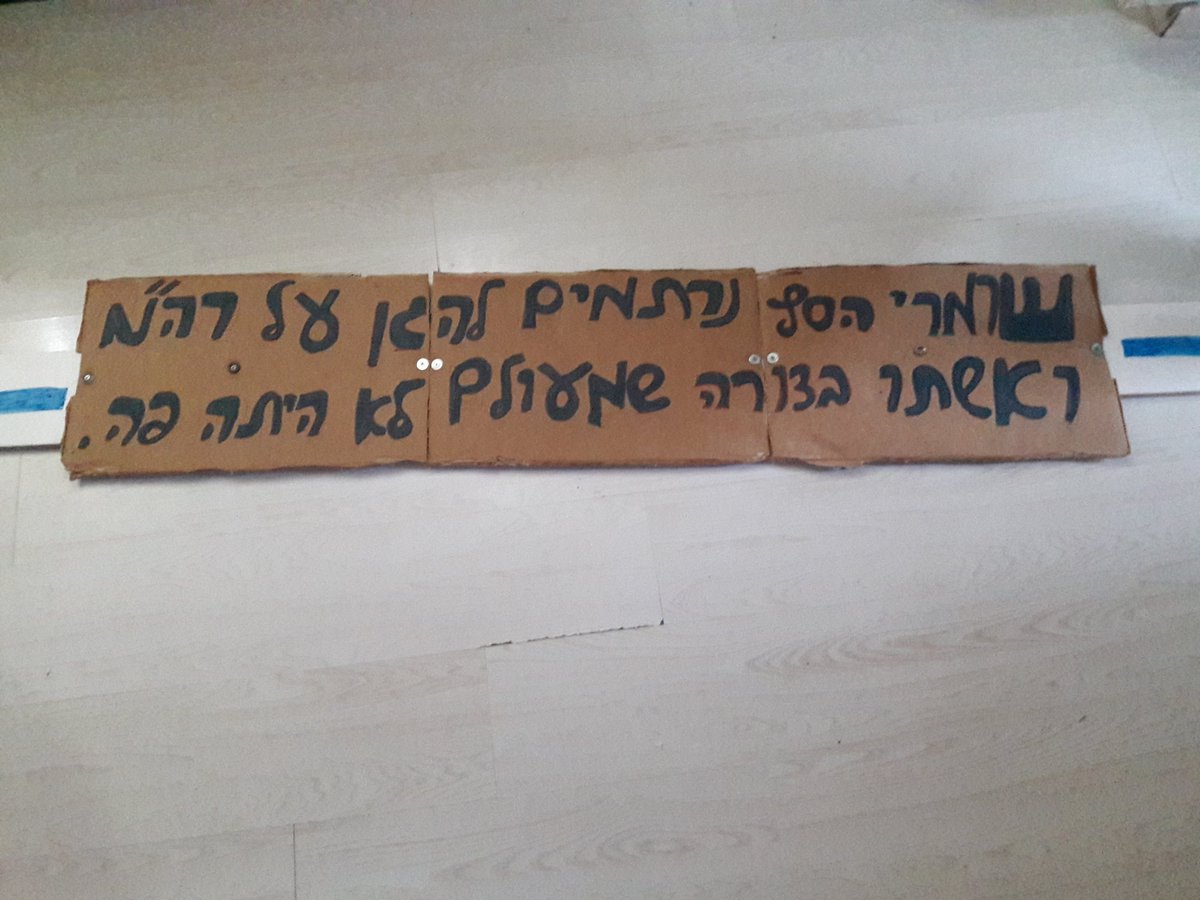 שומרי הסף נרתמים להגן על רה״מ
ואשתו בצורה שמעולם לא היתה פה.